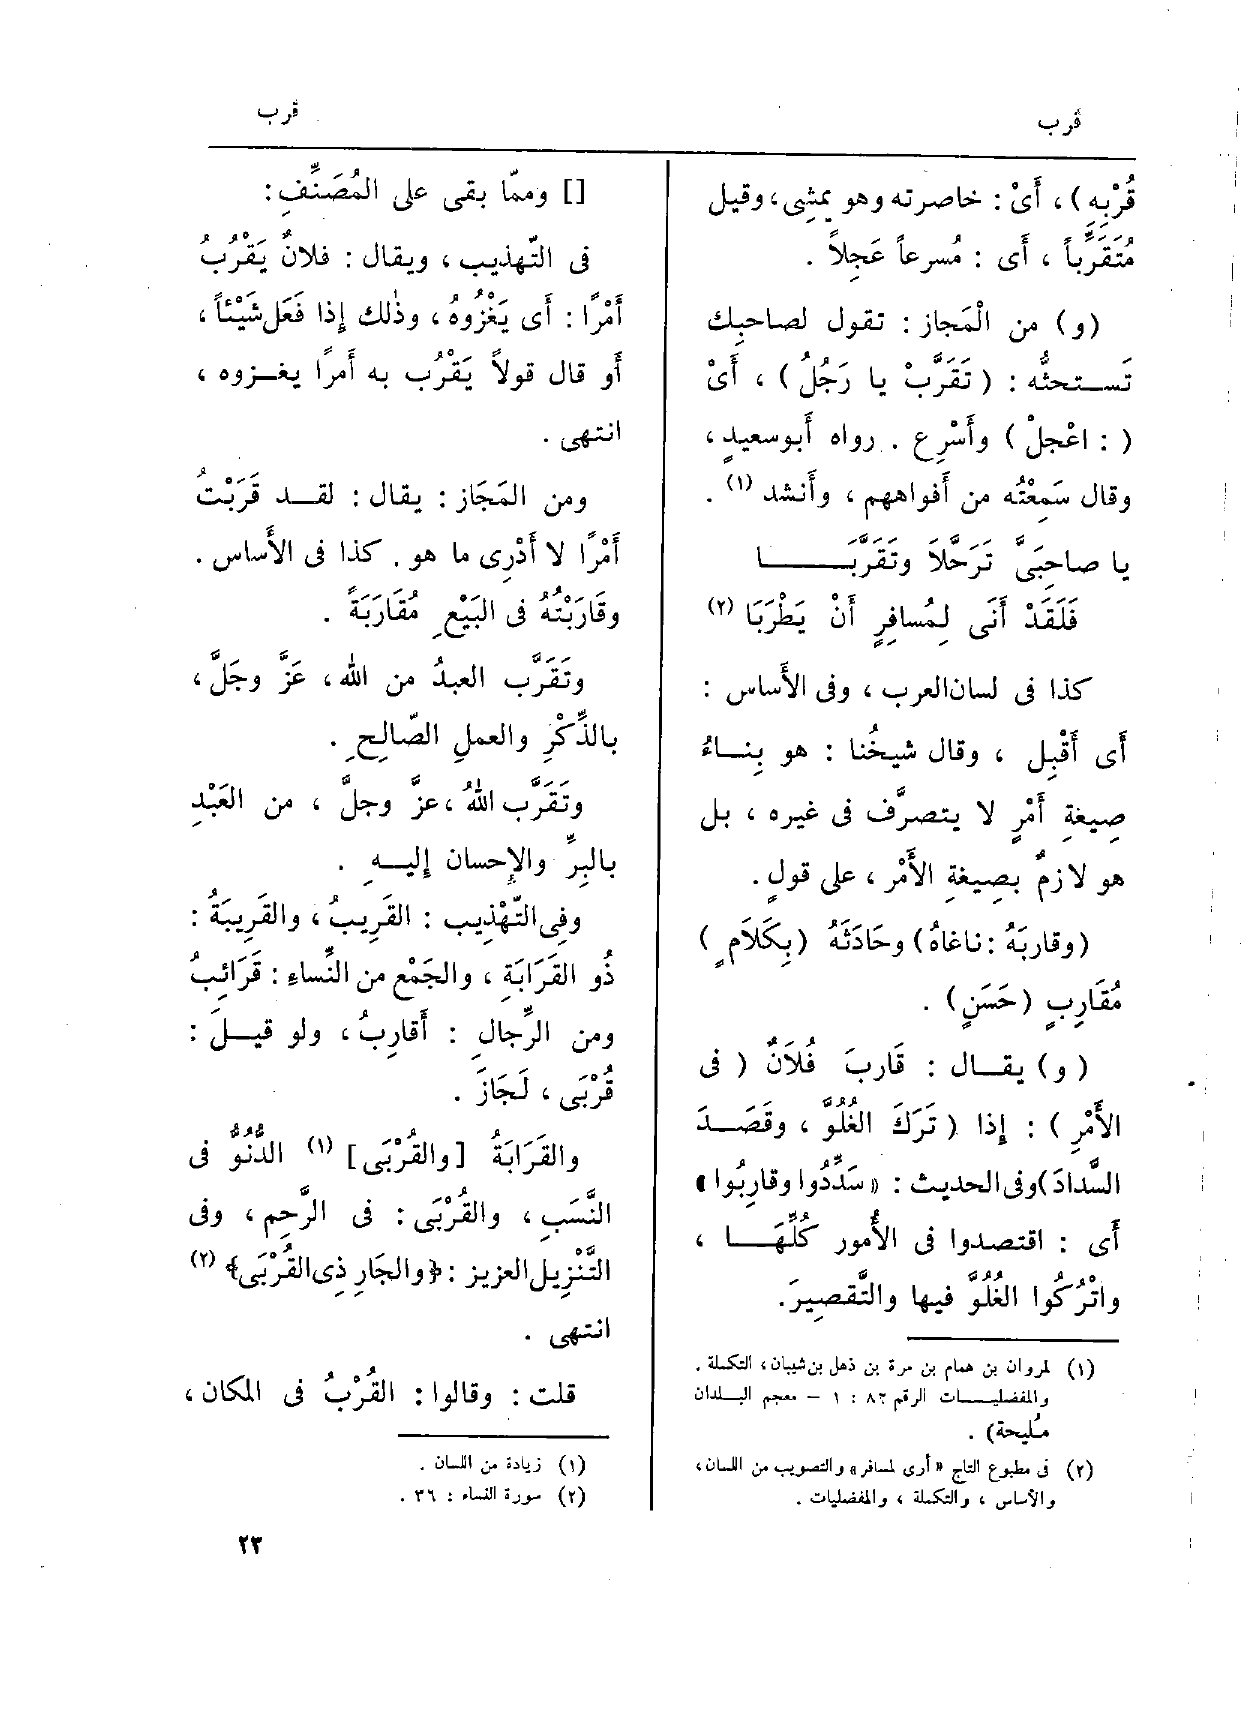 قرب
قرب
قُرْبِه)، أَىْ: خاصرته وهو يمشِى، وقيل
مُتَقَرِّباً ، أى : مُسرعاً عَجِلاً .
(و) من الْمَجاز: تقول لصاحبِك
تَستحثُّه : (تَقَرَّبْ يا رَجُلُ) ، أَىْ
( : اعْجلْ) وأَسْرِع . رواه أبوسعيدٍ،
وقال سَمِعْتُه من أَفواههم ، وأنشد (١) .
يا صاحِبَىَّ تَرَحَّلاَ وتَقَرَّبَا
فَلَقَدْ أَنَى لِمُسافِرٍ أَنْ يَطْرَبَا (٢)
كذا فى لسان العرب ، وفى الأَساس :
أَى أَقْبِل ، وقال شيخُنا : هو بِناءُ
صِيغةِ أَمْرٍ لا يتصرَّف فى غيره ، بل
هو لازمٌ بصِيغةِ الأَمْر ، على قولٍ .
(وقاربَهُ : ناغاهُ) وحَادَثَهُ (بِكَلَامٍ)
مُقَارِبٍ (حَسَنٍ) .
(و) يقال : قَاربَ فُلَانٌ (فى
الأَمْرِ) : إذا (تَرَكَ الغُلُوَّ ، وقَصَدَ
السَّدادَ) وفى الحديث : «سَدِّدُوا وقارِبُوا»
أى : اقتصدوا فى الأُمور كُلِّهَا ،
واتْرُكُوا الغُلُوَّ فيها والتَّقصِيرَ.
(١) لمروان بن همام بن مرة بن ذهل بن شيبان، التكملة .
والمفضليات الرقم ٨٢ : ١ – معجم البلدان
مُليحة) .
(٢) فى مطبوع التاج «أرى لمسافر» والتصويب من اللسان،
والأساس ، والتكملة ، والمفضليات .
[] وممّا بقى على المُصَنِّفِ:
فى التّهذيب ، ويقال : فلانٌ يَقْرُبُ
أَمْرًا : أى يَغْزُوهُ ، وذٰلك إذا فَعَل شَيْئاً ،
أو قال قولاً يَقْرُب به أَمرًا يغزوه ،
انتهى .
ومن المَجَاز : يقال : لقد قَرَبْتُ
أَمْرًا لا أَدْرِى ما هو . كذا فى الأَساس .
وقَارَبْتُهُ فى البَيْعِ مُقَارَبَةً .
وتَقَرَّب العبدُ من الله ، عَزَّ وجَلَّ ،
بالذِّكْرِ والعملِ الصّالِحِ .
وتَقَرَّب اللهُ ، عزَّ وجلَّ ، من العَبْدِ
بالبِرِّ والإِحسان إليهِ .
وفِى التَّهْذِيب : القَرِيبُ ، والقَرِيبَةُ :
ذُو القَرَابَةِ ، والجَمْع من النِّساءِ : قَرَائِبُ
ومن الرِّجالِ : أَقارِبُ ، ولو قيلَ :
قُرْبَى ، لَجَازَ .
والقَرَابَةُ [والقُرْبَى] (١) الدُّنُوُّ فى
النَّسَبِ ، والقُرْبَى : فى الرَّحِمِ ، وفى
التَّنْزِيل العزيز : ﴿والجَارِ ذِى القُرْبَى﴾ (٢)
انتهى .
قلت : وقالوا : القُرْبُ فى المكان ،
(١) زيادة من اللسان .
(٢) سورة النساء : ٣٦ .
٢٣